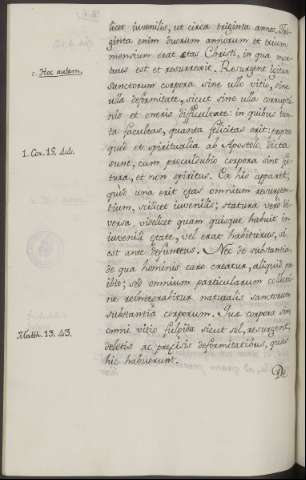 licet iuvenilis, ut circa triginta annos. Tri-
ginta enim duorum annorum et trium
mensium erat ętas Christi, in qua mor-
tuus est et resurrexit. Resurgent igitur
c. Hoc autem.
sanctorum corpora sine ullo vitio, sine
ulla deformitate, sicut sine ulla corrupti-
one et onere difficultate: in quibus tan-
ta facultas, quanta felicitas erit; propter
quod et spiritualia ab Apostolo dicta
1. Cor. 15. d.dv.
sunt, cum procul dubio corpora sint fu-
tura, et non spiritus. Ex his apparet,
quod una erit ętas omnium resurgen-
tium, scilicet iuvenilis; statura vero di-
versa, videlicet quam quisque habuit in
iuvenili ętate, vel erat habiturus, si
est ante defunctus. Nec de substantia,
de qua hominis caro creatur, aliquid pe-
ribit; sed omnium particularum collecti-
one reintegrabitur naturalis sanctorum
substantia corporum. Sua corpora sine
omni vitio fulgida sicut sol, resurgent,
Matth. 13. 43.
deletis ac pręcisis deformitatibus, quas
hic habuerunt.
De